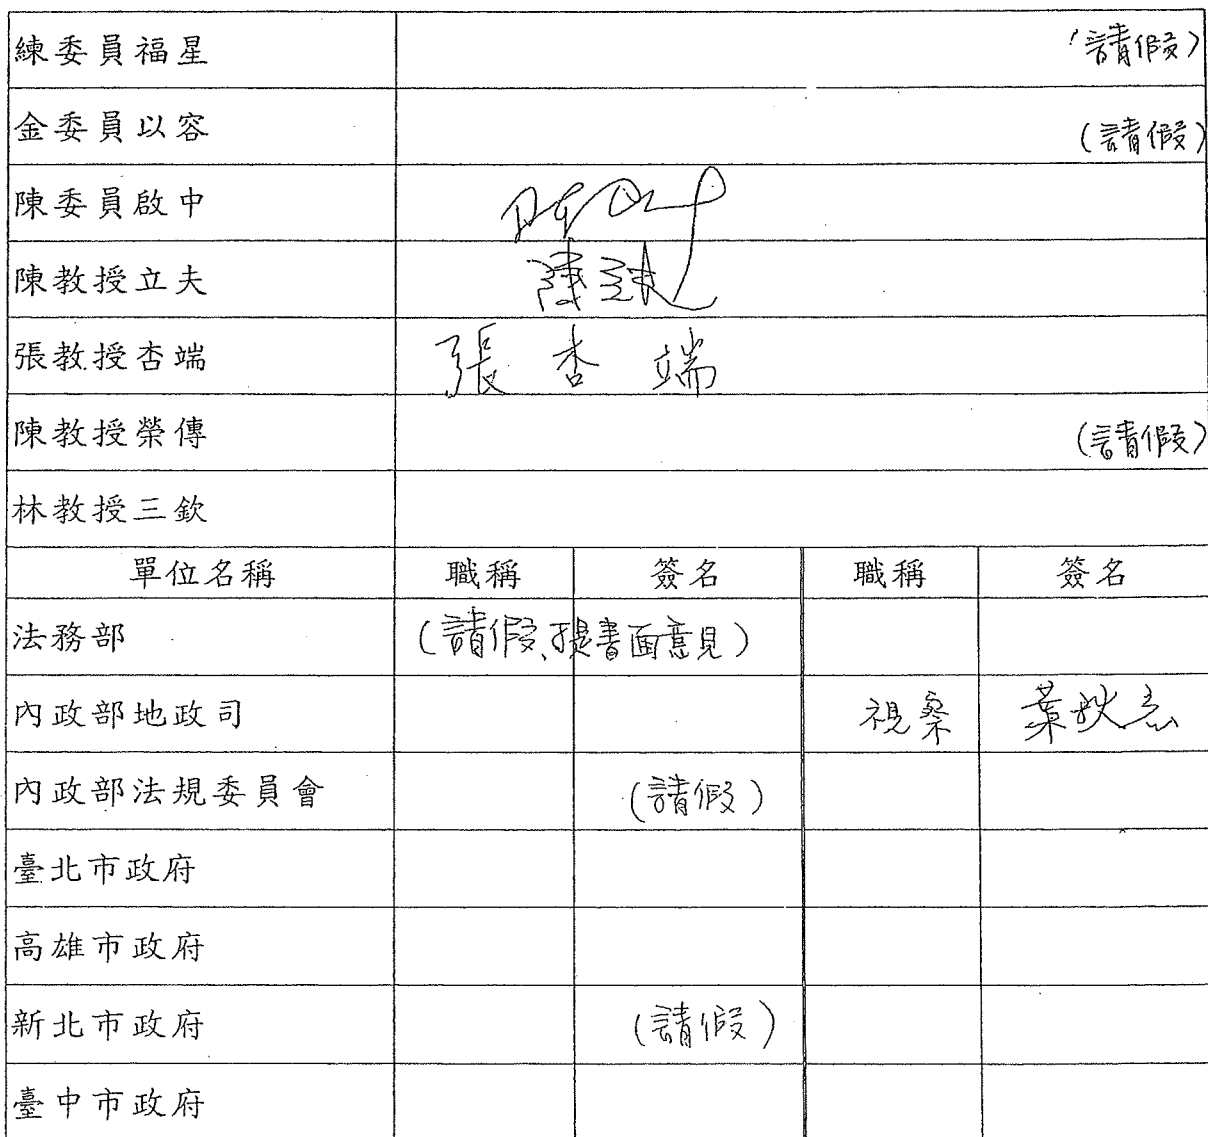 練委員福星 (請假)
金委員以容 (請假)
陳委員啟中
陳教授立夫
張教授杏端 張杏端
陳教授榮傳 (請假)
林教授三欽
單位名稱 職稱 簽名 職稱 簽名
法務部 (請假、提書面意見)
內政部地政司 視察
內政部法規委員會 (請假)
臺北市政府
高雄市政府
新北市政府 (請假)
臺中市政府